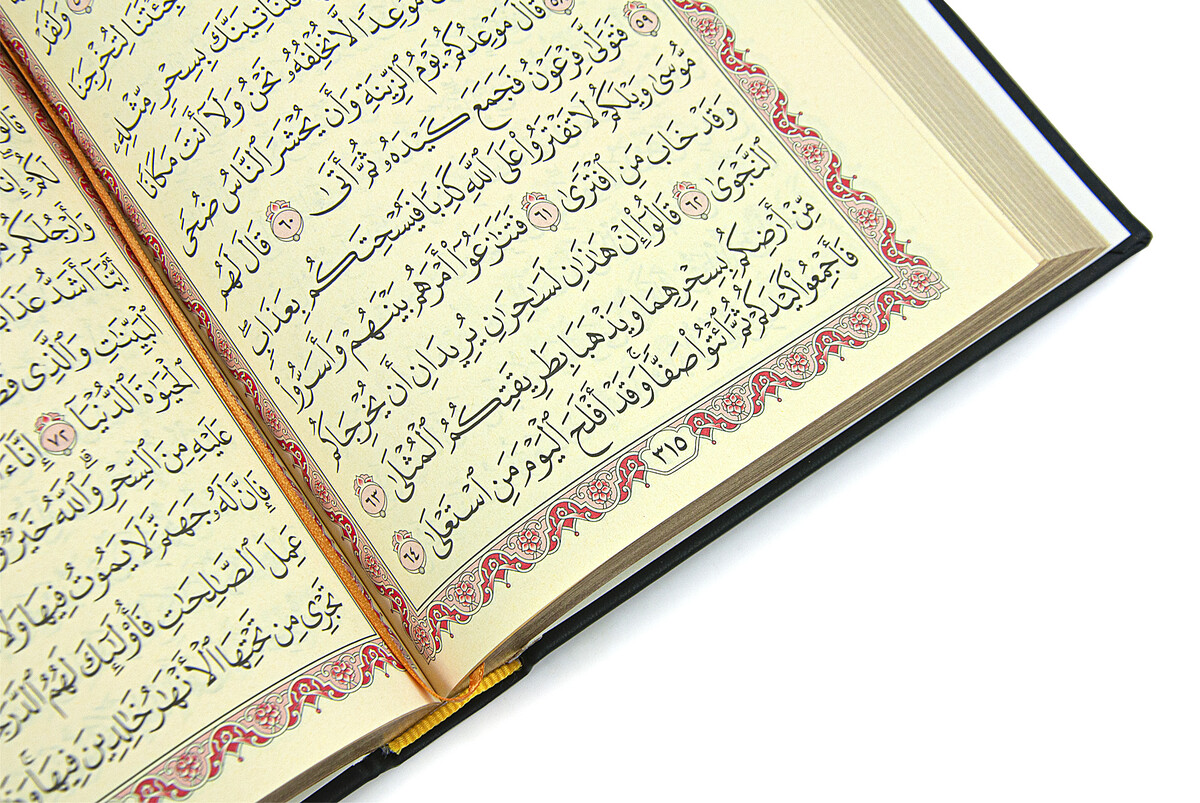 وَلَقَدْ
جِئْتَنَا لِتُخْرِجَنَا
فَلَنَأْتِيَنَّكَ بِسِحْرٍ مِّثْلِهِۦ
مَوْعِدًا لَّا نُخْلِفُهُۥ نَحْنُ وَلَآ أَنتَ مَكَانًا
٥٨ قَالَ مَوْعِدُكُمْ يَوْمُ ٱلزِّينَةِ وَأَن يُحْشَرَ ٱلنَّاسُ ضُحًى
٥٩ فَتَوَلَّىٰ فِرْعَوْنُ فَجَمَعَ كَيْدَهُۥ ثُمَّ أَتَىٰ ٦٠ قَالَ لَهُم
مُّوسَىٰ وَيْلَكُمْ لَا تَفْتَرُوا۟ عَلَى ٱللَّهِ كَذِبًا فَيُسْحِتَكُم بِعَذَابٍ ۖ
وَقَدْ خَابَ مَنِ ٱفْتَرَىٰ ٦١ فَتَنَٰزَعُوٓا۟ أَمْرَهُم بَيْنَهُمْ وَأَسَرُّوا۟
ٱلنَّجْوَىٰ ٦٢ قَالُوٓا۟ إِنْ هَٰذَٰنِ لَسَٰحِرَٰنِ يُرِيدَانِ أَن يُخْرِجَاكُم
مِّنْ أَرْضِكُم بِسِحْرِهِمَا وَيَذْهَبَا بِطَرِيقَتِكُمُ ٱلْمُثْلَىٰ ٦٣
فَأَجْمِعُوا۟ كَيْدَكُمْ ثُمَّ ٱئْتُوا۟ صَفًّا ۚ وَقَدْ أَفْلَحَ ٱلْيَوْمَ مَنِ ٱسْتَعْلَىٰ ٦٤
٣١٥
لَكُمْ إِنَّ
وَأَرْجُلَكُم
أَيُّنَآ أَشَدُّ عَذَابًا
ٱلْبَيِّنَٰتِ وَٱلَّذِى
ٱلْحَيَوٰةَ ٱلدُّنْيَآ ٧٢ إِنَّآ
عَلَيْهِ مِنَ ٱلسِّحْرِ ۗ وَٱللَّهُ خَيْرٌ
فَإِنَّ لَهُۥ جَهَنَّمَ لَا يَمُوتُ فِيهَا وَلَا
عَمِلَ ٱلصَّٰلِحَٰتِ فَأُو۟لَٰٓئِكَ لَهُمُ
تَجْرِى مِن تَحْتِهَا ٱلْأَنْهَٰرُ خَٰلِدِينَ فِيهَا